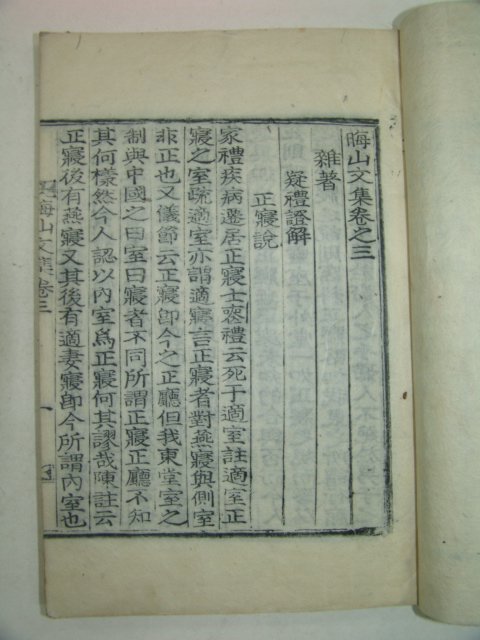 晦山文集卷之三
雜著
疑禮證解
正寢說
家禮疾病遷居正寢士喪禮云死于適室註適室正
寢之室疏適室亦謂適寢言正寢者對燕寢與側室
非正也又儀節云正寢卽今之正廳但我東堂室之
制與中國之曰室曰寢者不同所謂正寢正廳不知
其何樣然今人認以內室爲正寢何其謬哉陳註云
正寢後有燕寢又其後有適妻寢卽今所謂內室也
晦山文集卷三
一